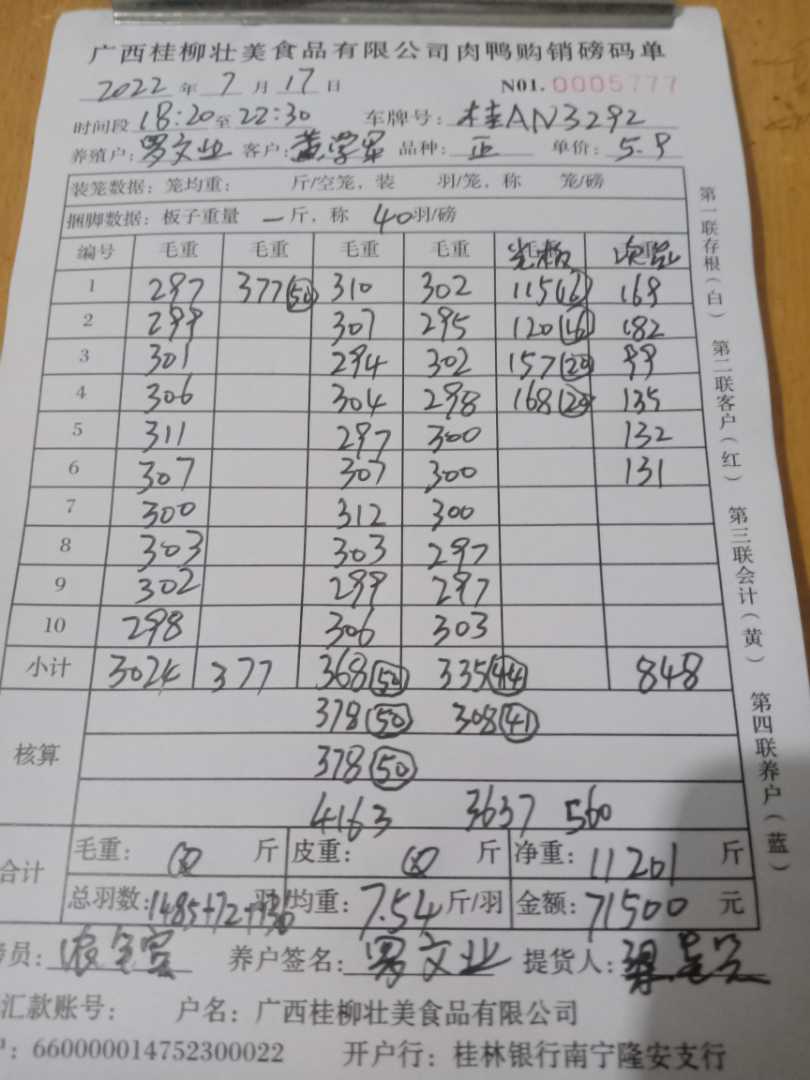 广西桂柳壮美食品有限公司肉鸭购销磅码单
2022 年 7 月 17 日 N01. 0005777
时间段 18:20 至 22:30 车牌号: 桂AN3292
养殖户: 罗文业 客户: 黄学军 品种: 正 单价: 5.9
装笼数据: 笼均重: 斤/空笼, 装 羽/笼, 称 笼/磅
捆脚数据: 板子重量 一 斤, 称 40 羽/磅
编号 毛重 毛重 毛重 毛重
1 297 377(50) 310 302 115(16) 169
2 299 307 295 120(16) 182
3 301 294 302 157(20) 99
4 306 304 298 168(20) 135
5 311 297 300 132
6 307 307 300 131
7 300 312 300
8 303 303 297
9 302 299 297
10 298 306 303
小计 3024 377 368(50) 335(44) 848
378(50) 308(41)
核算
378(50)
4163 3637 560
合计 毛重: 斤 皮重: 斤 净重: 11201 斤
总羽数: 1485+72+130 羽 均重: 7.54 斤/羽 金额: 71500 元
员: 养户签名: 罗文业 提货人:
汇款账号: 户名: 广西桂柳壮美食品有限公司
: 660000014752300022 开户行: 桂林银行南宁隆安支行
第一联存根(白)
第二联客户(红)
第三联会计(黄)
第四联养户(蓝)